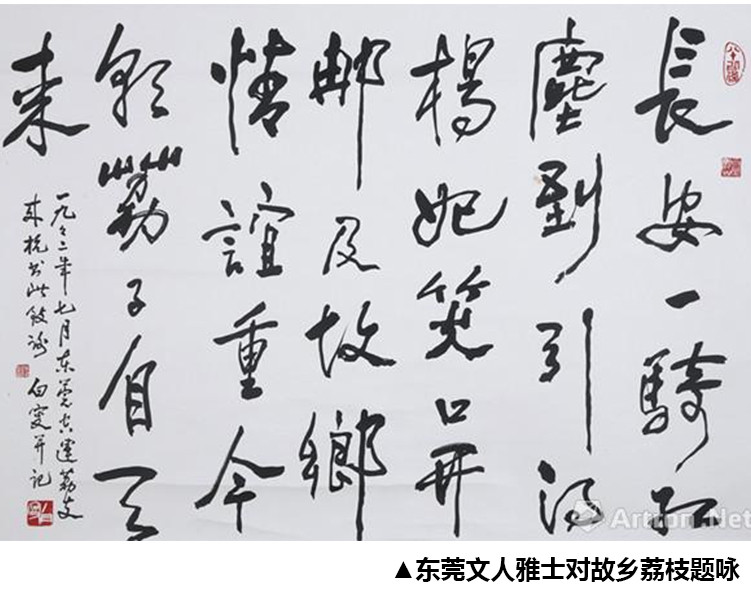 長安一騎紅
塵到引得
楊妃笑口開
那及故鄉
情誼重今
朝荔子自天
来
一九九二年七月东莞空運荔支
来杭书此致谢 白雯并记
Artron.Net
▲东莞文人雅士对故乡荔枝题咏